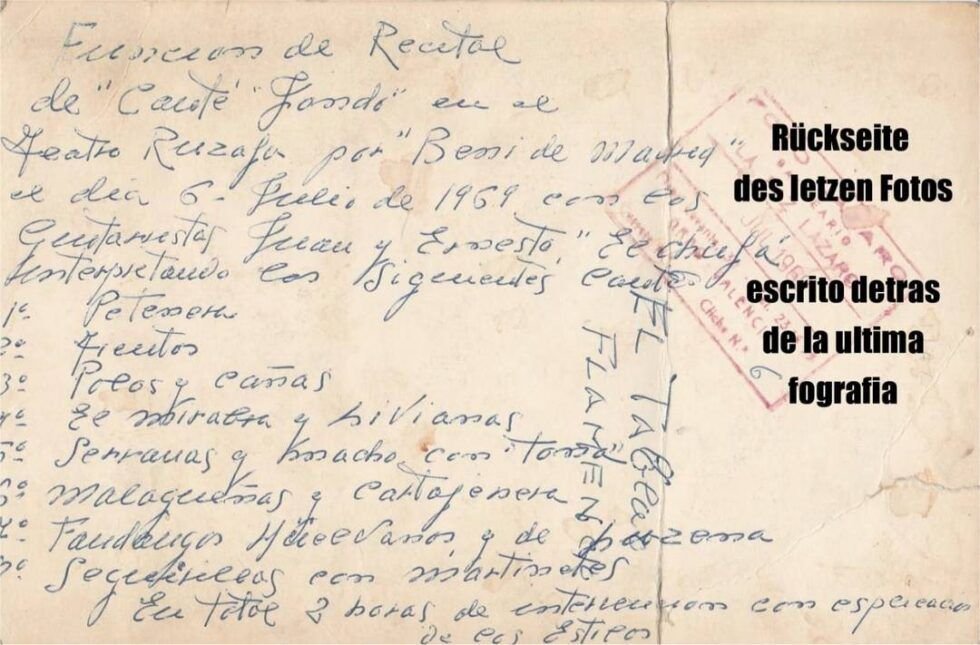 Funcion de Recital
de "Cante" "Jondo" en el
Teatro Ruzafa por "Beni de Madrid"
el dia 6 - Julio de 1969 con los
Guitarristas Juan y Ernesto, "El chufa"
Interpretando los Siguientes Cantes
1º Petenera
2º Tientos
3º Polos y cañas
4º El Mirabra y Livianas
5º Serranas y macho con "Toma"
6º Malagueñas y Cartajenera
7º Fandangos Huelvanos y de Lucena
Seguirillas con Martinetes
En total 2 horas de intervencion con
de los Estilos
EL TABLAO
FLAMENCO
LAZARO
VALENCIA
Cliche N.º 6
Rückseite
des letzen Fotos
escrito detras
de la ultima
fografia